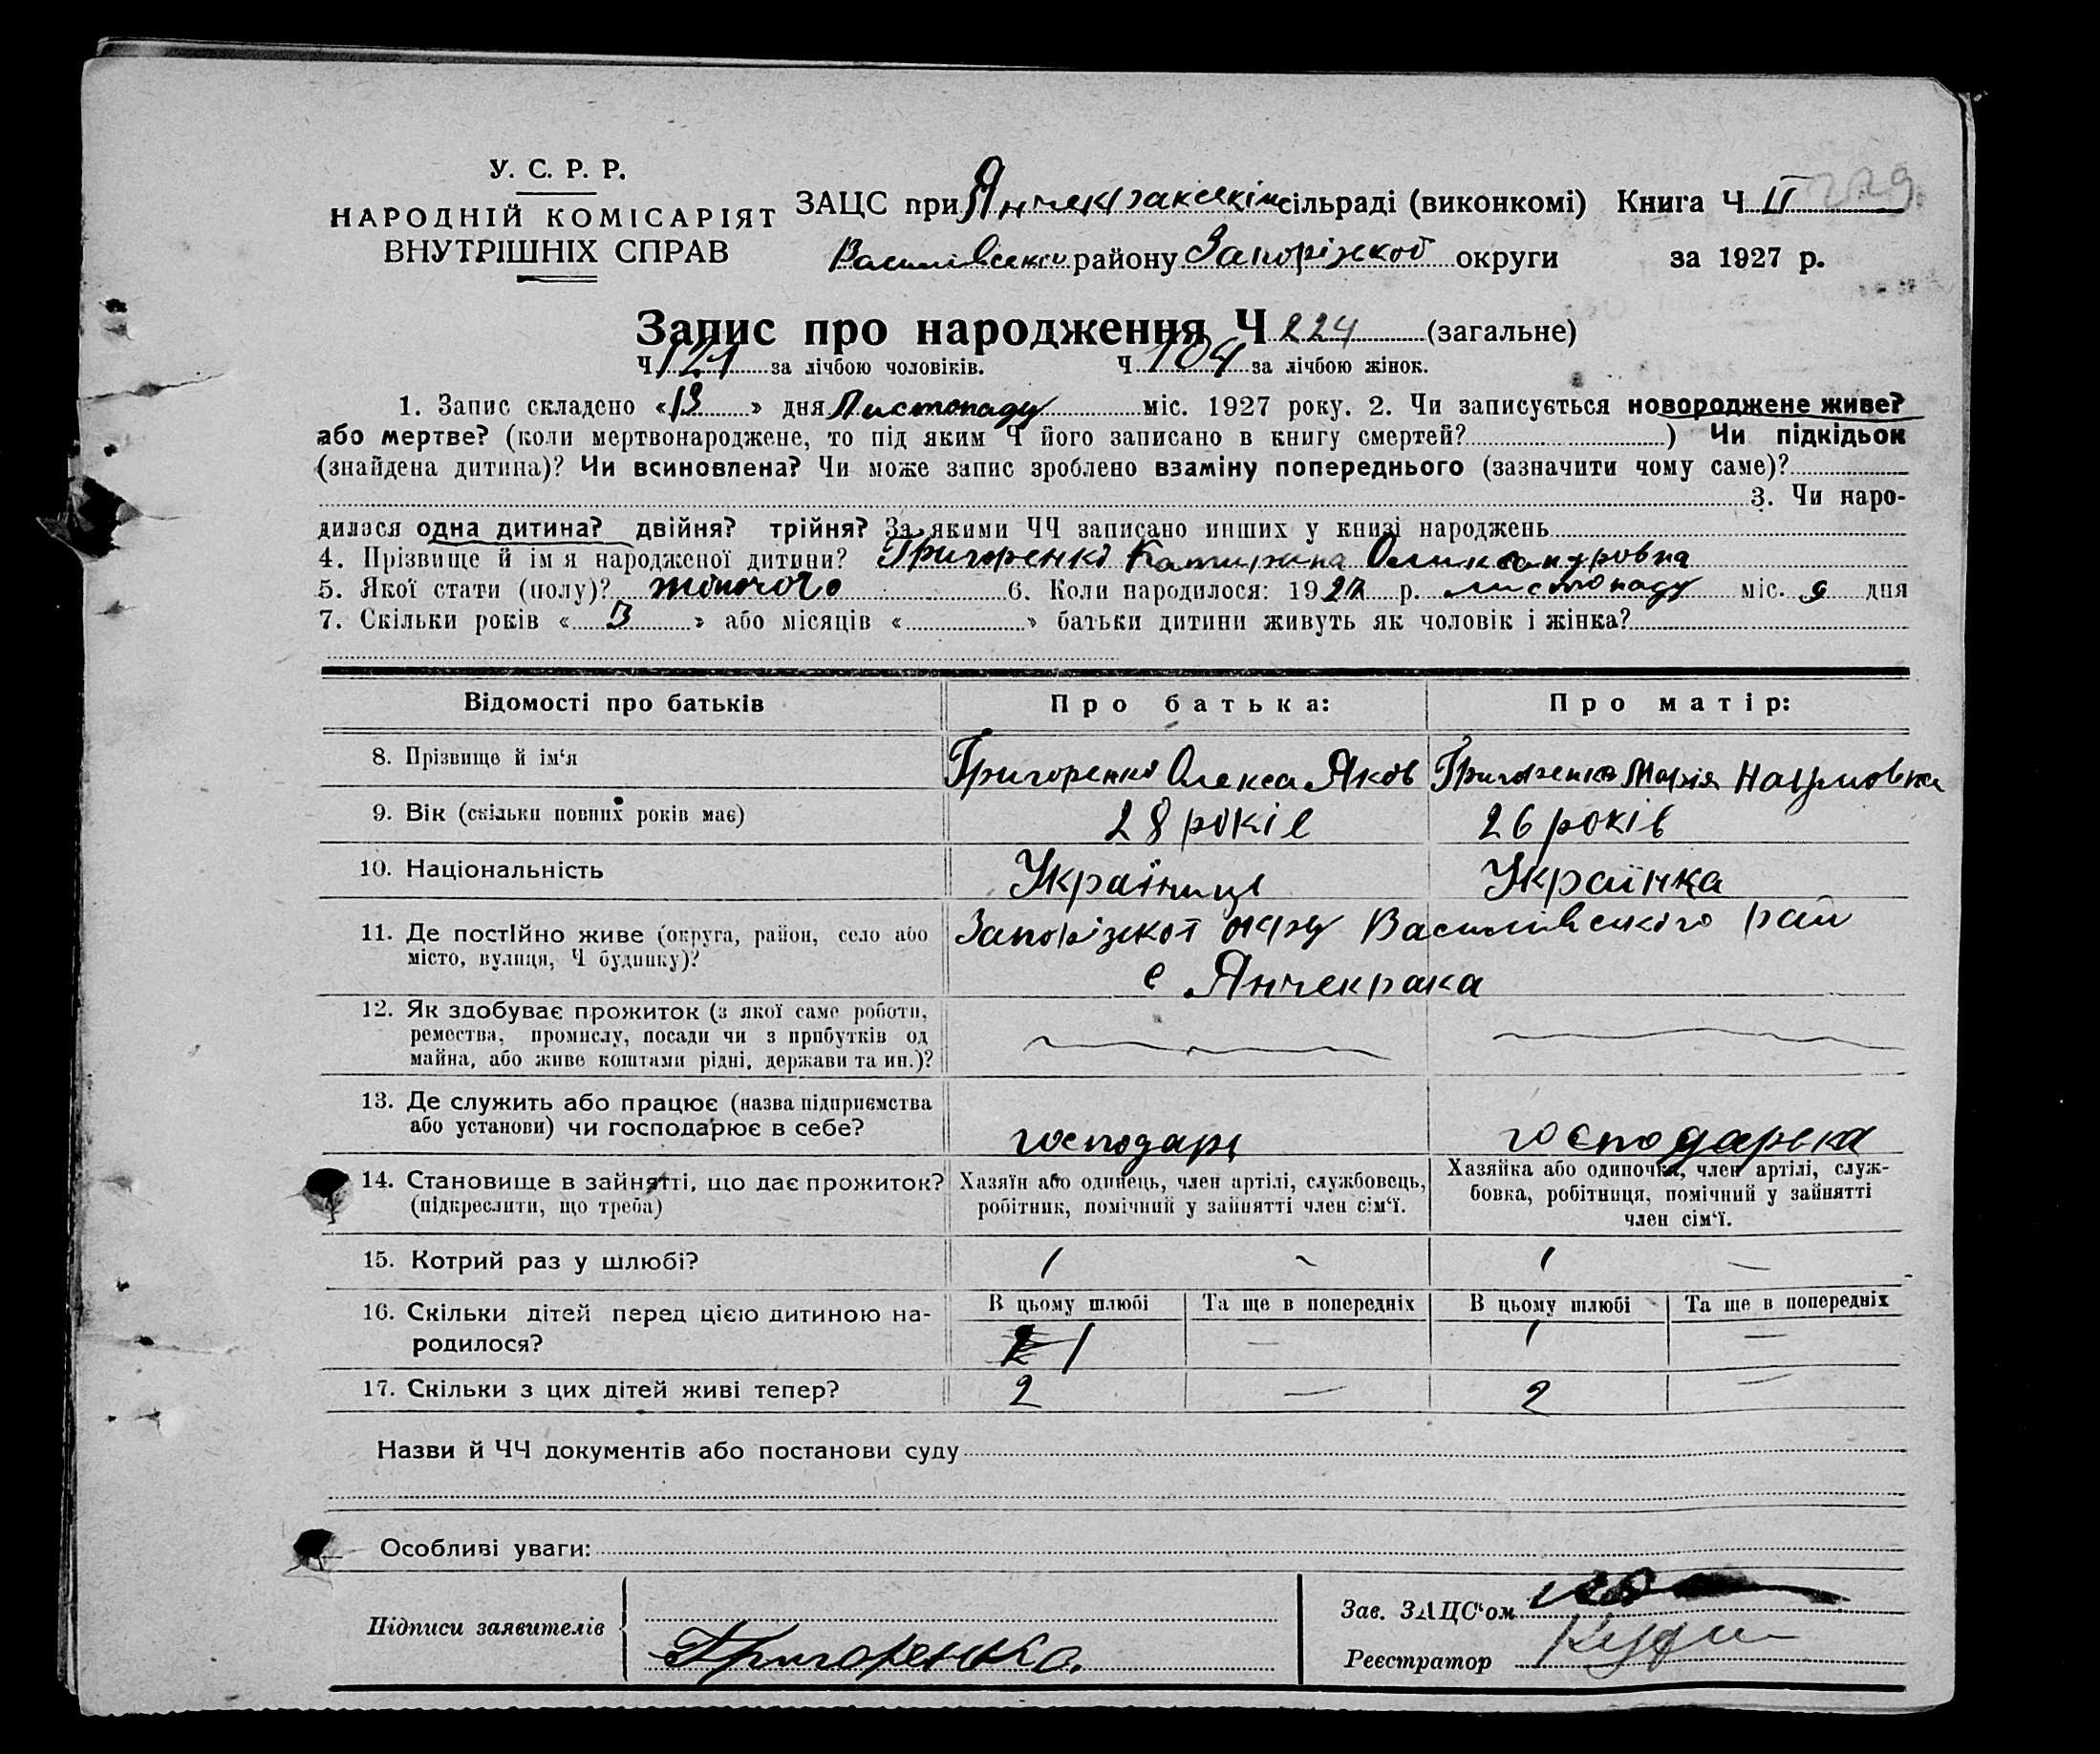 У. С. Р. Р.
НАРОДНІЙ КОМІСАРІЯТ
ВНУТРІШНІХ СПРАВ
ЗАЦС при Янчекракскім сільраді (виконкомі) Книга Ч II 229
Василівскій району Запоріжкої округи за 1927 р.
Запис про народження Ч 224 (загальне)
Ч 121 за лічбою чоловіків. Ч 104 за лічбою жінок.
1. Запис складено «13» дня Листопаду міс. 1927 року. 2. Чи записується новороджене живе?
або мертве? (коли мертвонароджене, то під яким Ч його записано в книгу смертей?) Чи підкідьок
(знайдена дитина)? Чи всиновлена? Чи може запис зроблено взаміну попереднього (зазначити чому саме)?
3. Чи наро-
дилася одна дитина? двійня? трійня? За якими ЧЧ записано инших у книзі народжень
4. Прізвище й ім я народженої дитини? Григоренко Катирина Олександровна
5. Якої стати (полу)? жіночого 6. Коли народилося: 1927 р. листопаду міс. 9 дня
7. Скільки років «3» або місяців « » батьки дитини живуть як чоловік і жінка?
Відомості про батьків Про батька: Про матір:
8. Прізвище й ім‘я Григоренко Олекса Яков Григоренко Марія Наумовна
9. Вік (скільки повних років має) 28 років 26 років
10. Національність Україниць Українка
11. Де постІйно живе (округа, район, село або Запорізкої окру Василівського рай
місто, вулиця, Ч будинку)? с Янчекрака
12. Як здобуває прожиток (з якої саме роботи,
ремества, промислу, посади чи з прибутків од
майна, або живе коштами рідні, держави та ин.)?
13. Де служить або працює (назва підприємства
або установи) чи господарює в себе? господарь господарька
14. Становище в зайнятті, що дає прожиток? Хазяїн або одинець, член артілі, службовець, Хазяйка або одиночка, член артілі, служ-
(підкреслити, що треба) робітник, помічний у зайнятті член сім‘ї. бовка, робітниця, помічний у зайнятті
член сім‘ї.
15. Котрий раз у шлюбі? 1 – 1 —
В цьому шлюбі Та ще в попередніх В цьому шлюбі Та ще в попередніх
16. Скільки дітей перед цією дитиною на-
родилося? 1 — 1 —
17. Скільки з цих дітей живі тепер? 2 — 2 —
Назви й ЧЧ документів або постанови суду
Особливі уваги:
Підписи заявителів Григоренко.
Зав. ЗАЦС‘ом
Реєстратор